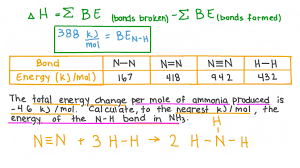 ΔH = Σ BE (bonds broken) - Σ BE (bonds formed)
388 kJ/mol = BE N-H
Bond N–N N=N N≡N H–H
Energy (kJ/mol) 167 418 942 432
The total energy change per mole of ammonia produced is
-46 kJ/mol. Calculate, to the nearest kJ/mol, the
energy of the N-H bond in NH₃.
H
N≡N + 3 H-H → 2 H-N-H